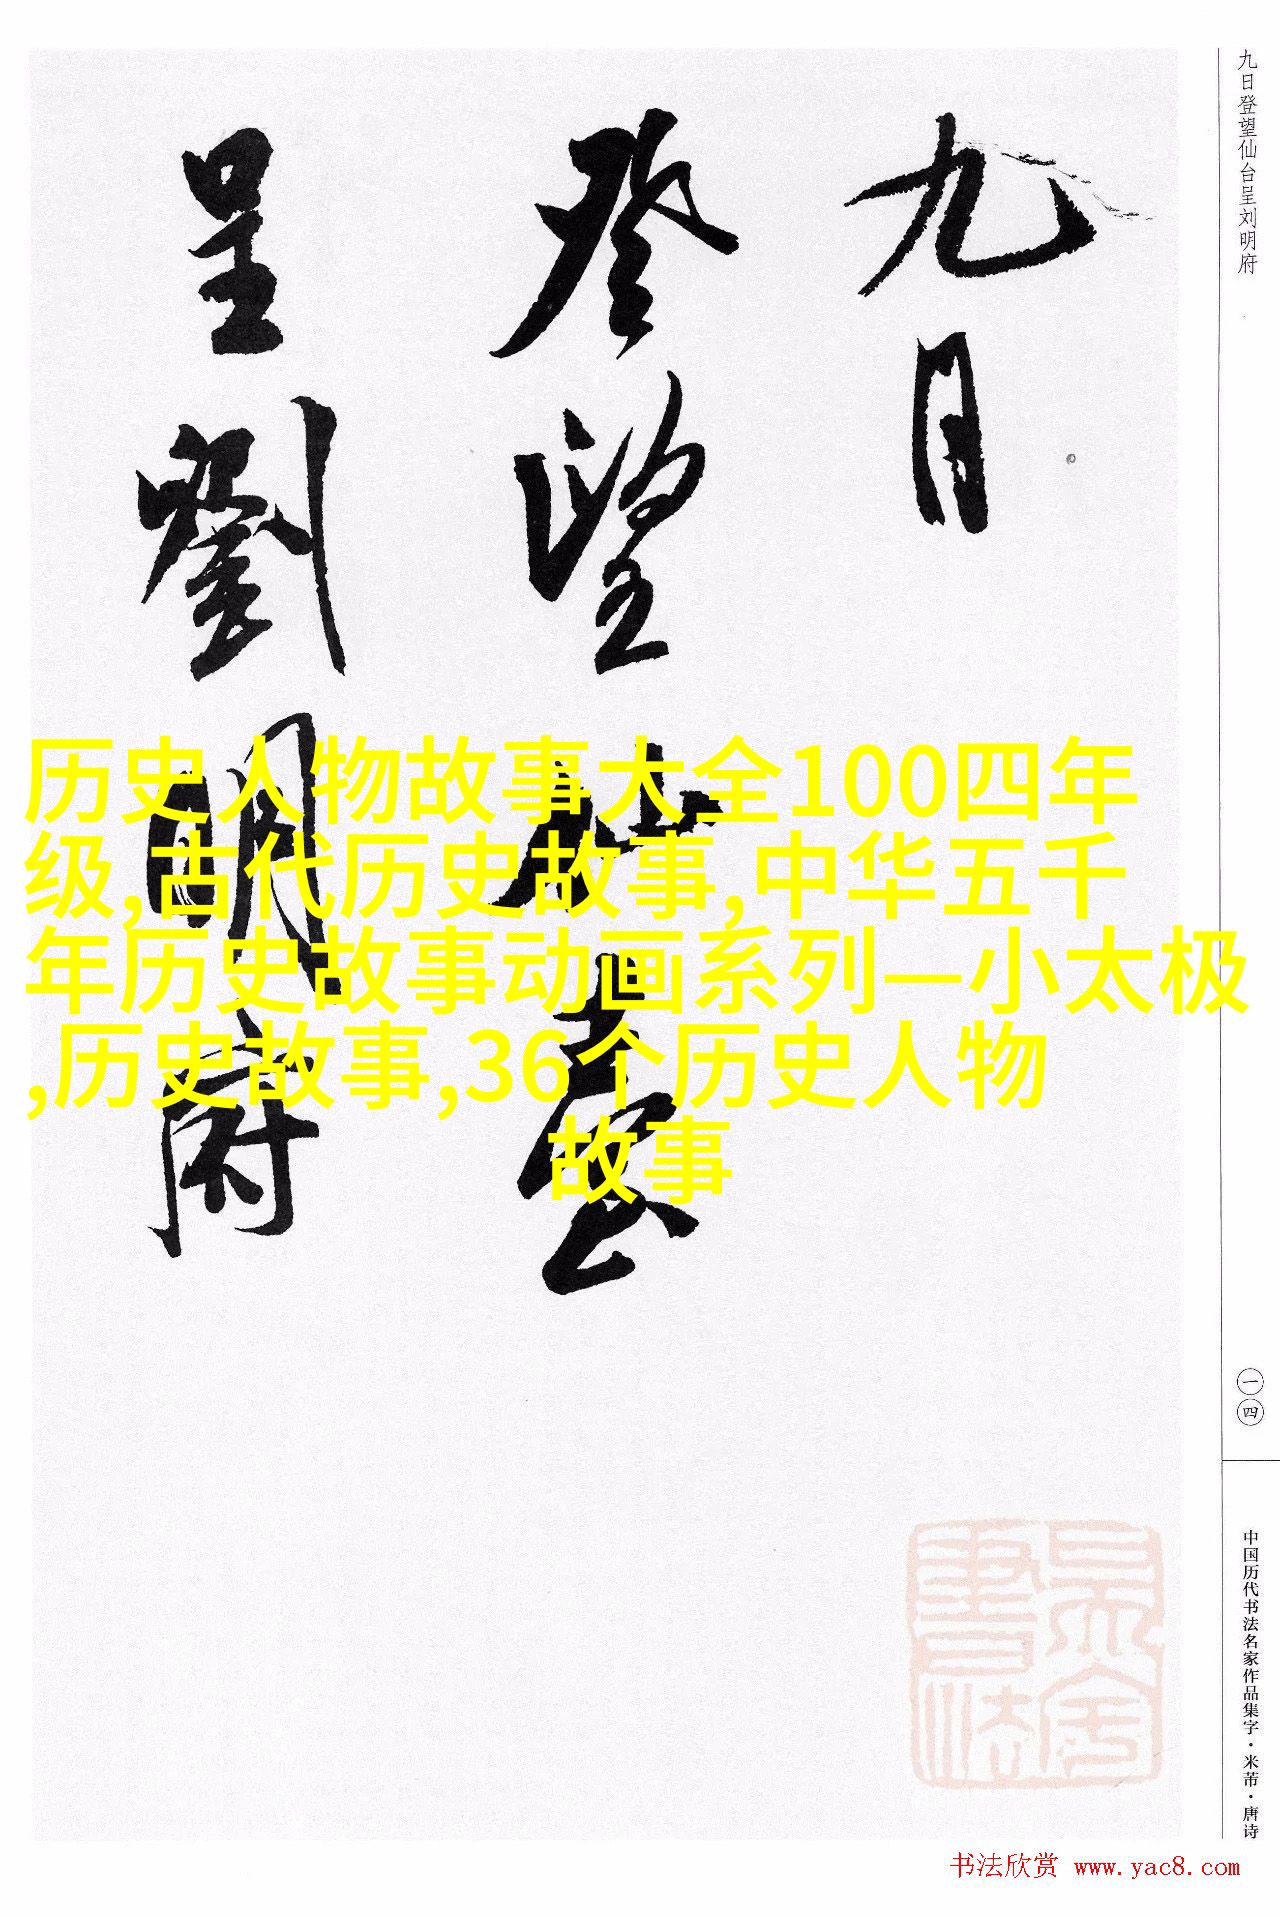 九日登望仙台呈刘明府
九日
登望仙臺
呈劉明府
历史人物故事大全100四年
级,古代历史故事,中华五千
年历史故事动画系列—小太极
,历史故事,36个历史人物
故事
一四
中国历代书法名家作品集字·米芾·唐诗
书法欣赏 www.yac8.com